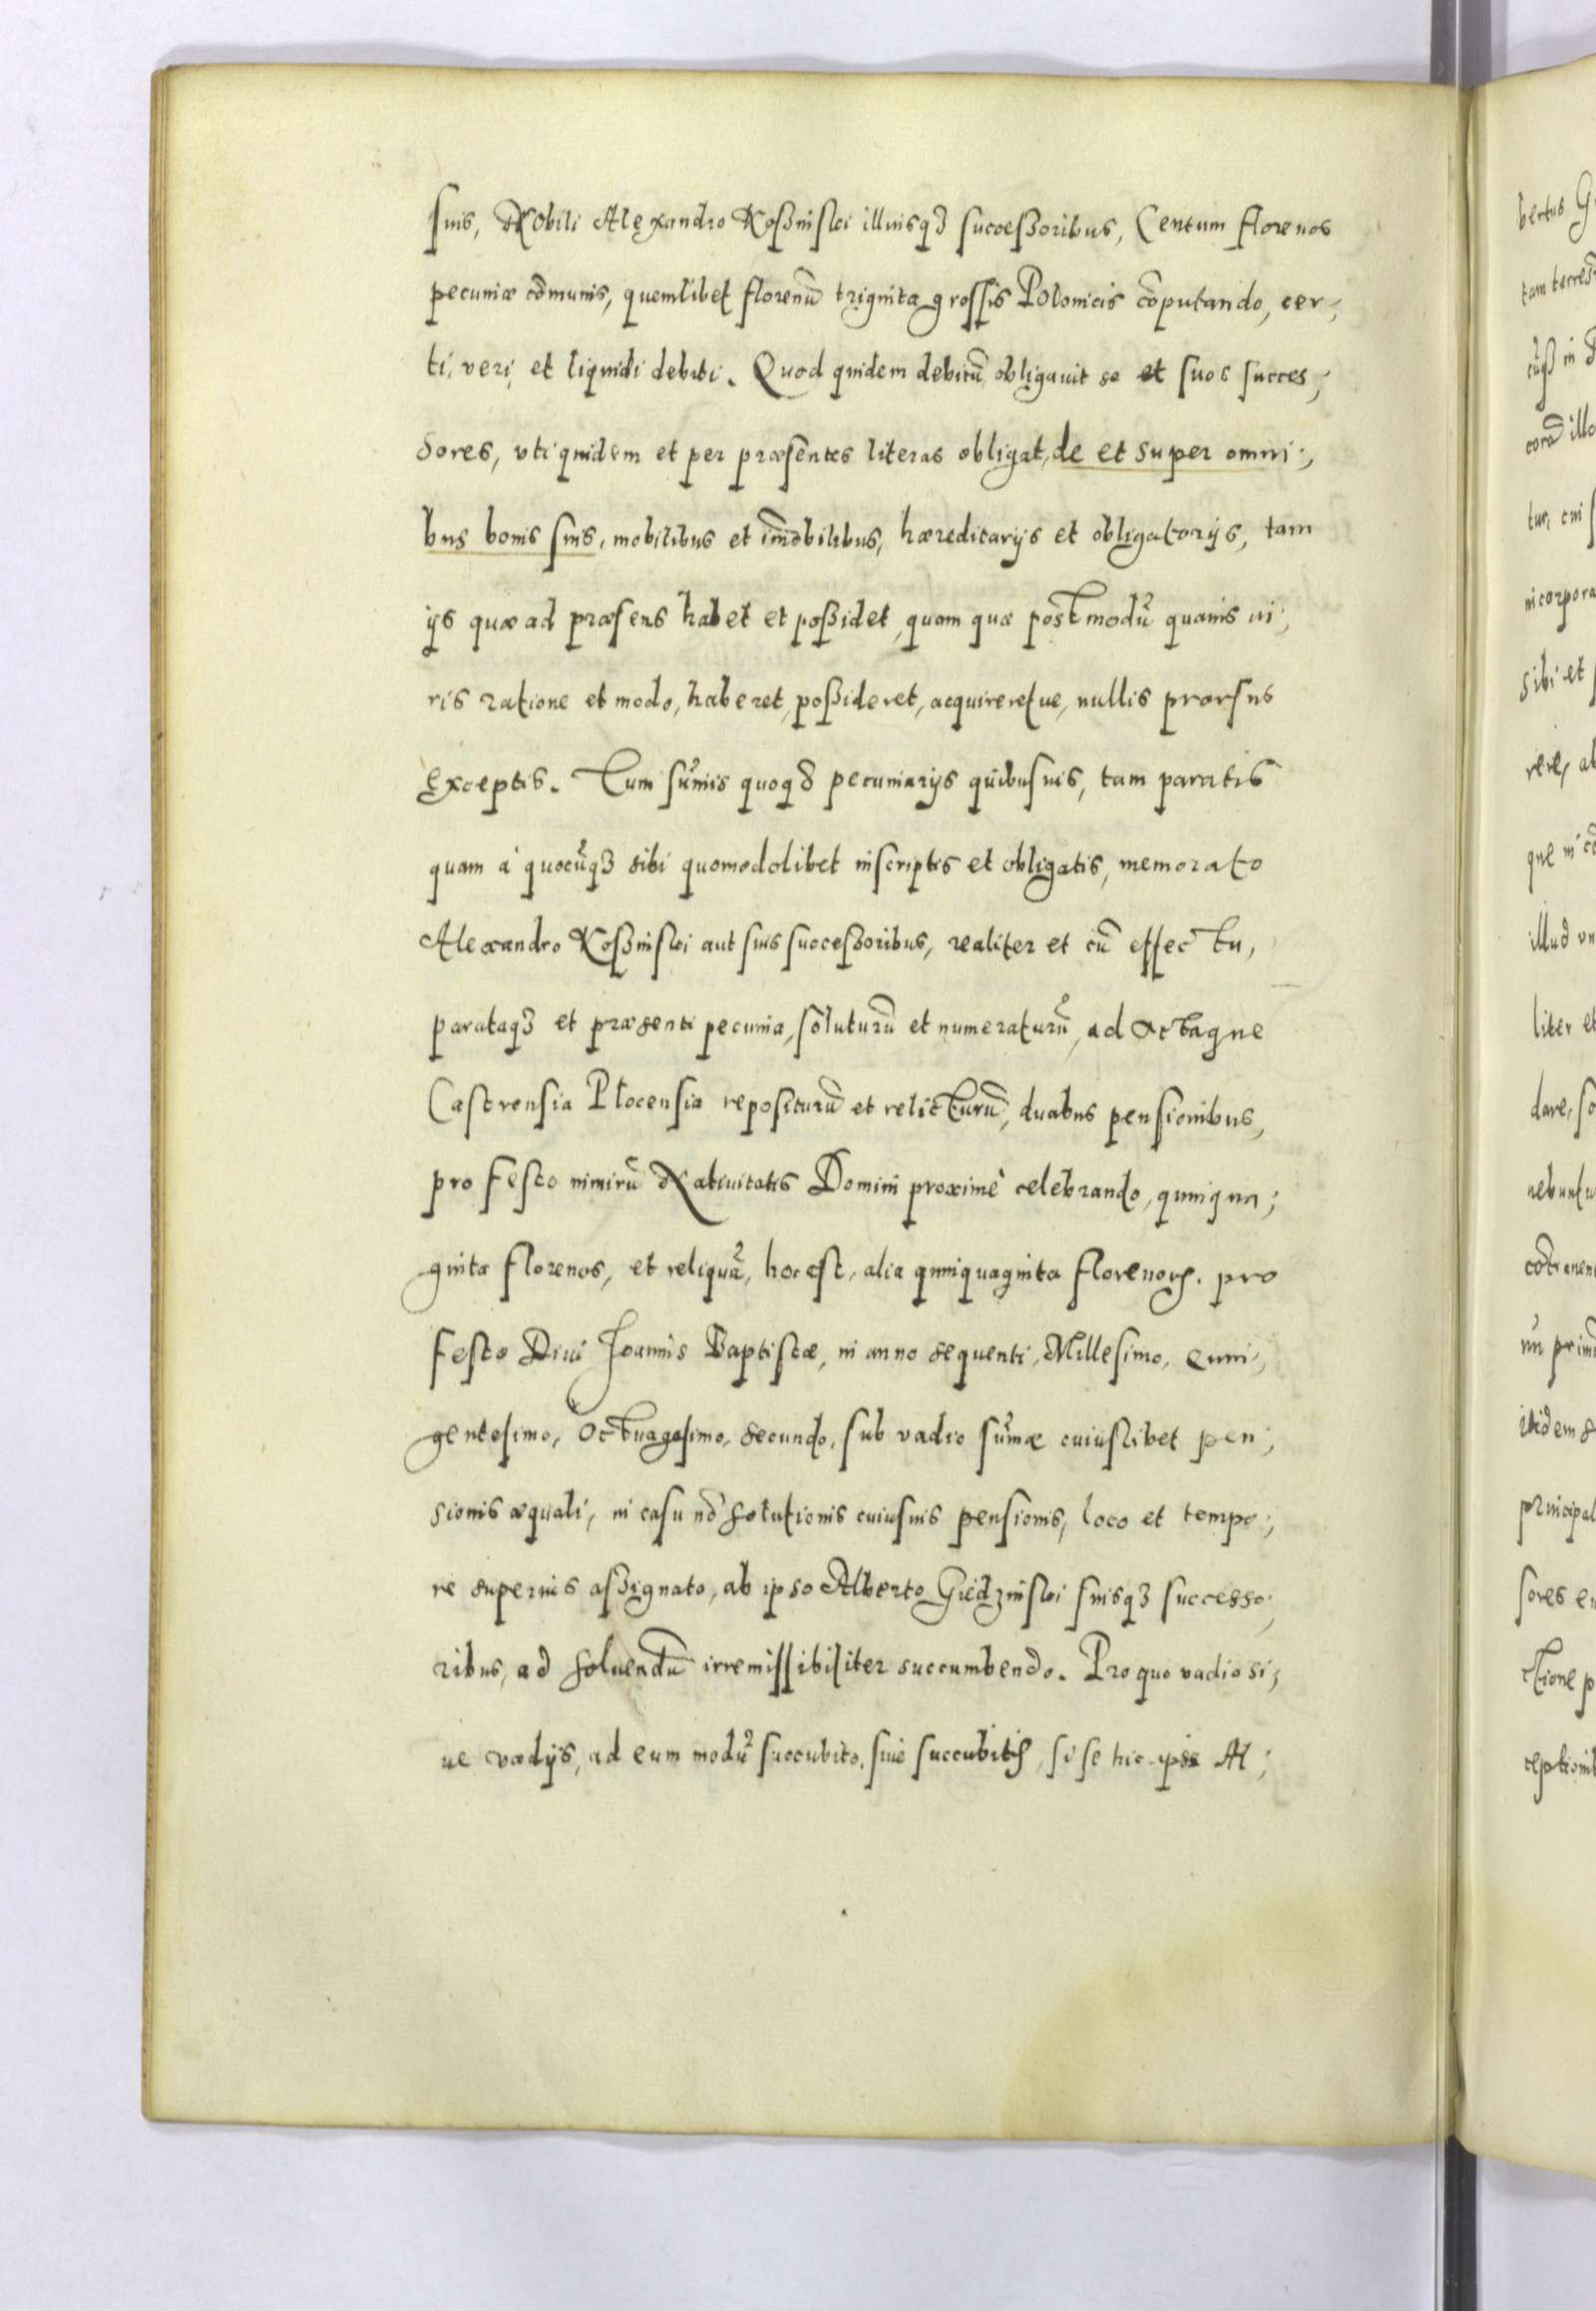 suis, Nobili Alexandro Koßinski illiusq3 succeßoribus, Centum florenos
pecuniæ cõmunis, quemlibet florenũ triginta grossis Polonicis cõputando, cer;
ti, veri, et liquidi debiti. Quod quidem debitũ obligauit se et suos succes;
sores, vti quidem et per præsentes literas obligat, de et super omni;
bus bonis suis, mobilibus et im̃obilibus, hæreditarijs et obligatorijs, tam
ijs quæ ad præsens habet et poßidet, quam quæ postmodũ quauis iu;
ris ratione et modo, haberet, poßideret, acquireretue, nullis prorsus
exceptis. Tum sum̃is quoq3 pecuniarijs quibusuis, tam paratis
quam à quocũq3 sibi quomodolibet inscriptis et obligatis, memorato
Alexandro Koßinski aut suis succeßoribus, realiter et cũ effectu,
parataq3 et præsenti pecunia, soluturũ et numeraturũ, ad Actaque
Castrensia Plocensia repositurũ et relicturũ, duabus pensionibus,
pro festo nimirũ Natiuitatis Domini proximè celebrando, quinqua;
ginta florenos, et reliquã, hoc est, alia quinquaginta florenorꝝ. pro
festo Diui Joannis Baptistæ, in anno sequenti, Millesimo, quin;
gentesimo, Octuagesimo, secundo, sub vadio sum̃æ cuiuslibet pen;
sionis æquali, in casu nõ solutionis cuiusuis pensionis, loco et tempo;
re superius aßignato, ab ipso Alberto Giedzinski suisq3 successo;
ribus, ad soluendũ irremissibiliter succumbendo. Pro quo vadio si;
ue vadijs, ad eum modũ succubito, siue succubitis, si se hic ipse Al;
bertus
tam
in
illo
tur, cui
incorpora
sibi et
rere,
que in
illud
liter et
dare,
itidem
principal
sores
ctione